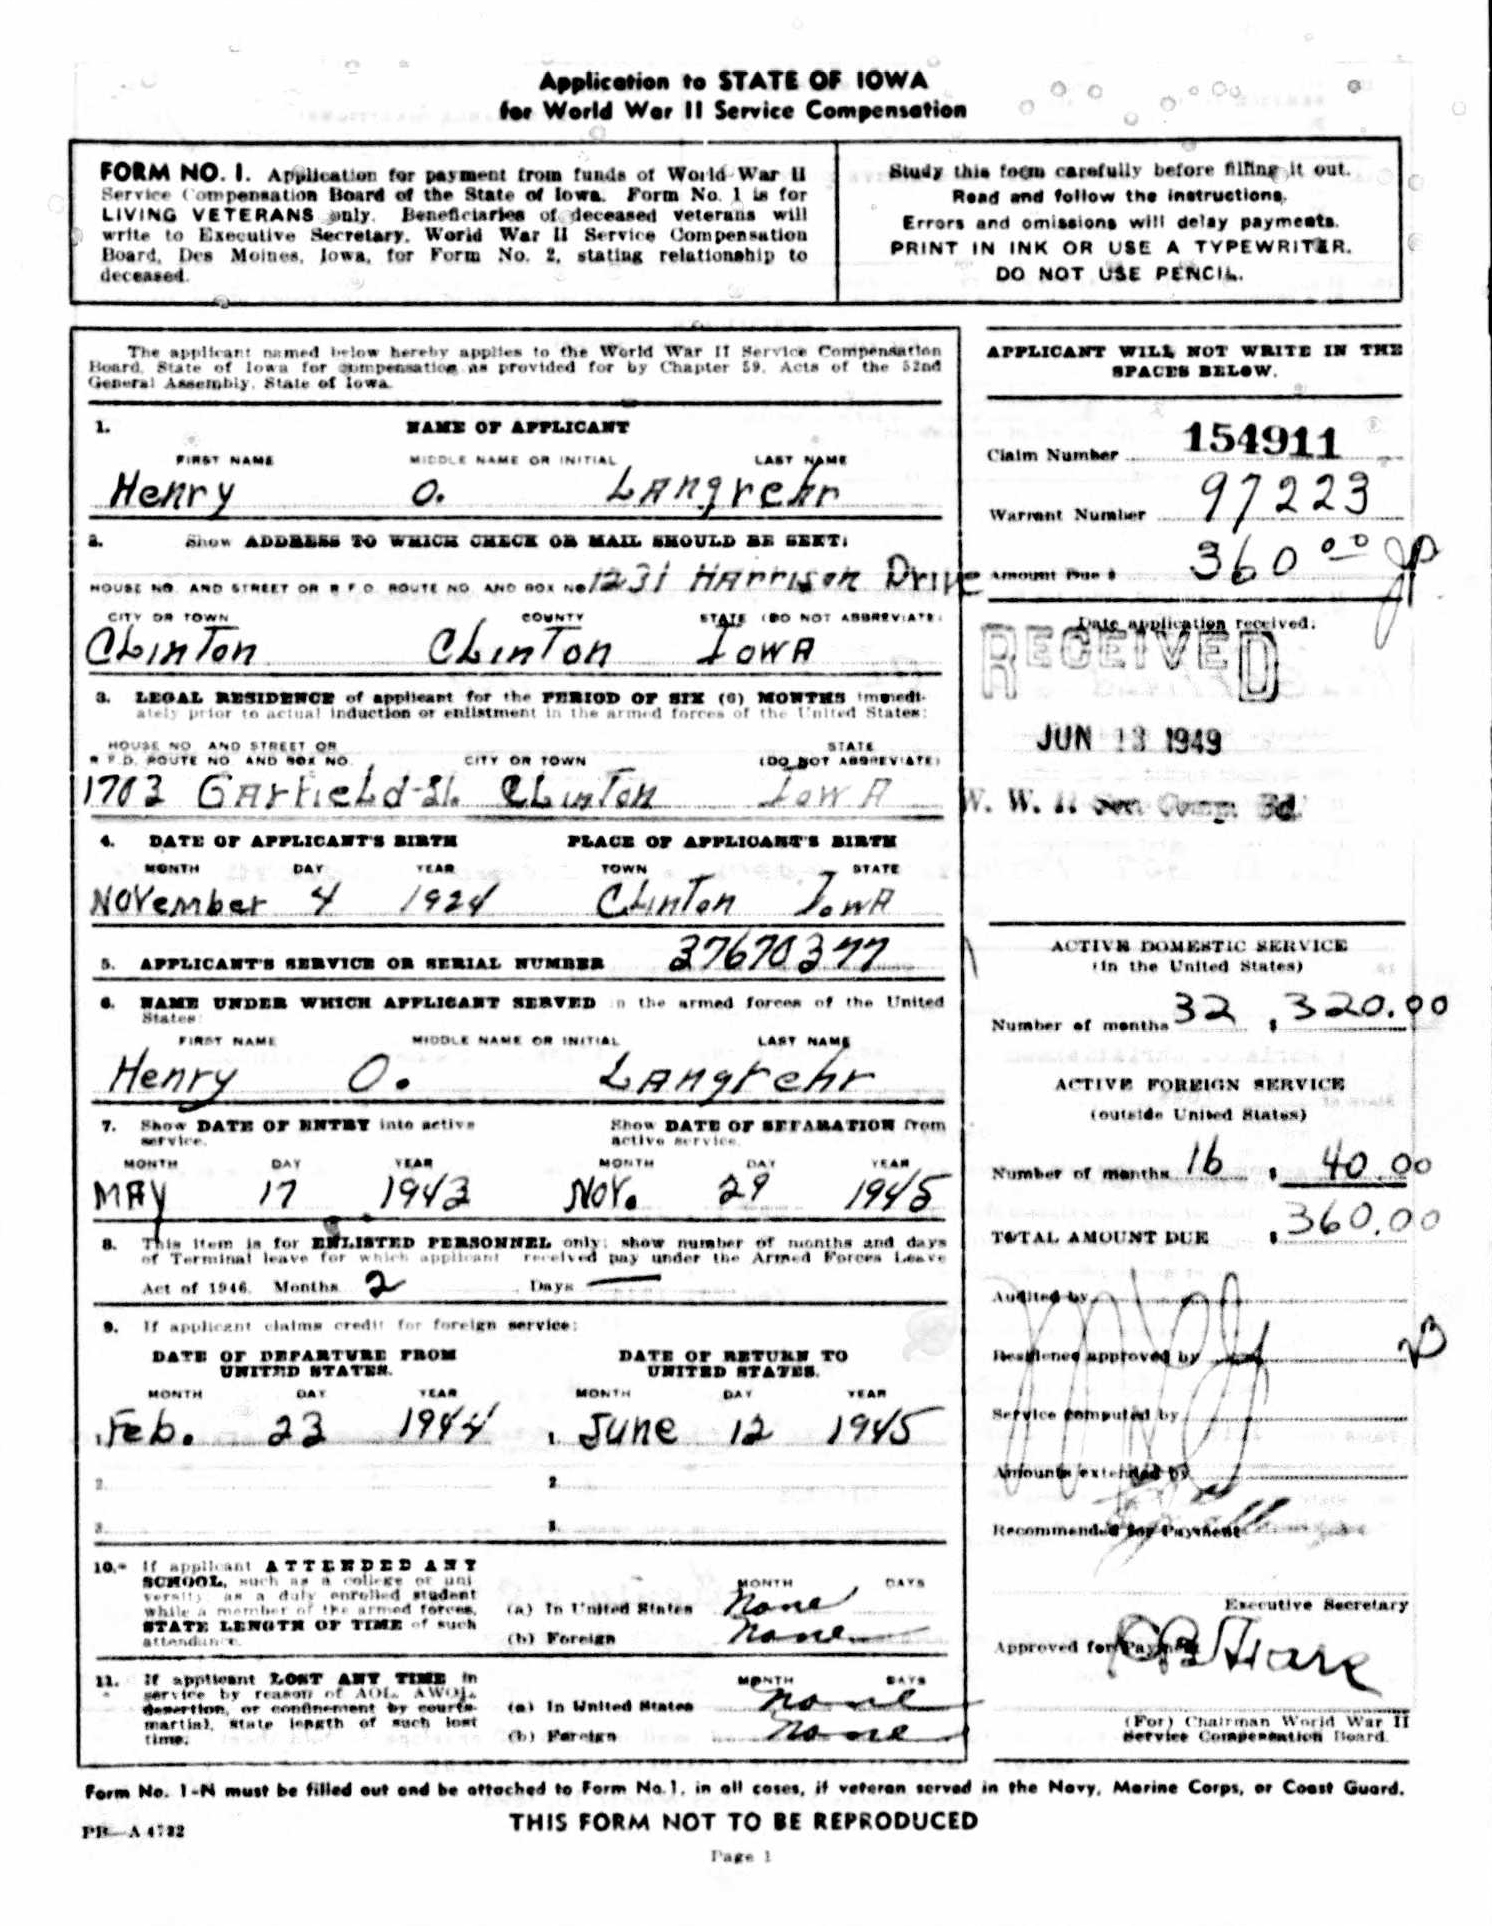 Application to STATE OF IOWA
for World War II Service Compensation
FORM NO. 1. Application for payment from funds of World War II
Service Compensation Board of the State of Iowa. Form No. 1 is for
LIVING VETERANS only. Beneficiaries of deceased veterans will
write to Executive Secretary, World War II Service Compensation
Board, Des Moines, Iowa, for Form No. 2, stating relationship to
deceased.
Study this form carefully before filling it out.
Read and follow the instructions.
Errors and omissions will delay payments.
PRINT IN INK OR USE A TYPEWRITER.
DO NOT USE PENCIL.
The applicant named below hereby applies to the World War II Service Compensation
Board, State of Iowa for compensation as provided for by Chapter 59, Acts of the 52nd
General Assembly, State of Iowa.
1. NAME OF APPLICANT
FIRST NAME MIDDLE NAME OR INITIAL LAST NAME
Henry O. Langrehr
2. Show ADDRESS TO WHICH CHECK OR MAIL SHOULD BE SENT:
HOUSE NO. AND STREET OR R F D ROUTE NO. AND BOX NO. 1231 Harrison Drive
CITY OR TOWN COUNTY STATE (DO NOT ABBREVIATE)
Clinton Clinton Iowa
3. LEGAL RESIDENCE of applicant for the PERIOD OF SIX (6) MONTHS immedi-
ately prior to actual induction or enlistment in the armed forces of the United States:
HOUSE NO. AND STREET OR
R F.D. ROUTE NO. AND BOX NO. CITY OR TOWN STATE (DO NOT ABBREVIATE)
1703 Garfield St. Clinton Iowa
4. DATE OF APPLICANT'S BIRTH PLACE OF APPLICANT'S BIRTH
MONTH DAY YEAR TOWN STATE
November 4 1924 Clinton Iowa
5. APPLICANT'S SERVICE OR SERIAL NUMBER 37670377
6. NAME UNDER WHICH APPLICANT SERVED in the armed forces of the United
States:
FIRST NAME MIDDLE NAME OR INITIAL LAST NAME
Henry O. Langrehr
7. Show DATE OF ENTRY into active
service.
Show DATE OF SEPARATION from
active service.
MONTH DAY YEAR MONTH DAY YEAR
May 17 1943 Nov. 29 1945
8. This item is for ENLISTED PERSONNEL only; show number of months and days
of Terminal leave for which applicant received pay under the Armed Forces Leave
Act of 1946. Months 2 Days —
9. If applicant claims credit for foreign service:
DATE OF DEPARTURE FROM
UNITED STATES.
DATE OF RETURN TO
UNITED STATES.
MONTH DAY YEAR MONTH DAY YEAR
1. Feb. 23 1944 1. June 12 1945
2. 2.
3. 3.
10. If applicant ATTENDED ANY
SCHOOL, such as a college or uni
versity, as a duly enrolled student
while a member of the armed forces,
STATE LENGTH OF TIME of such
attendance.
MONTH DAYS
(a) In United States None
(b) Foreign None
11. If applicant LOST ANY TIME in
service by reason of AOL, AWOL,
desertion, or confinement by courts-
martial, state length of such lost
time:
MONTH DAYS
(a) In United States None
(b) Foreign None
APPLICANT WILL NOT WRITE IN THE
SPACES BELOW.
Claim Number 154911
Warrant Number 97223
Amount Due $ 360 00 JP
Date application received:
RECEIVED
JUN 13 1949
W. W. II Ser. Comp. Bd.
ACTIVE DOMESTIC SERVICE
(in the United States)
Number of months 32 $ 320.00
ACTIVE FOREIGN SERVICE
(outside United States)
Number of months 16 $ 40.00
TOTAL AMOUNT DUE $ 360.00
Audited by
Residence approved by
Service computed by
Amounts extended by
Recommended for Payment
Executive Secretary
Approved for Payment
(For) Chairman World War II
Service Compensation Board.
Form No. 1-N must be filled out and be attached to Form No. 1, in all cases, if veteran served in the Navy, Marine Corps, or Coast Guard.
THIS FORM NOT TO BE REPRODUCED
PR—A 4732
Page 1